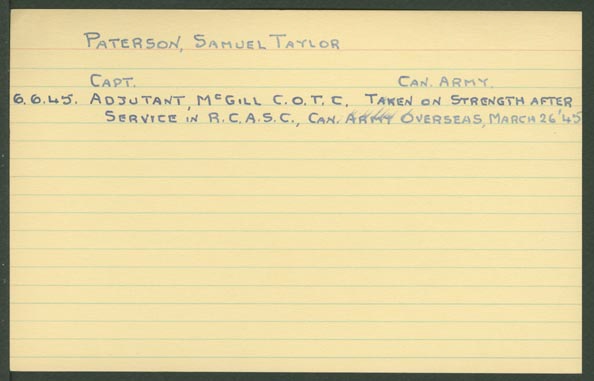 PATERSON, SAMUEL TAYLOR
CAPT. CAN. ARMY.
6.6.45. ADJUTANT, McGILL C.O.T.C. TAKEN ON STRENGTH AFTER
SERVICE IN R.C.A.S.C., CAN. ARMY OVERSEAS, MARCH 26'45